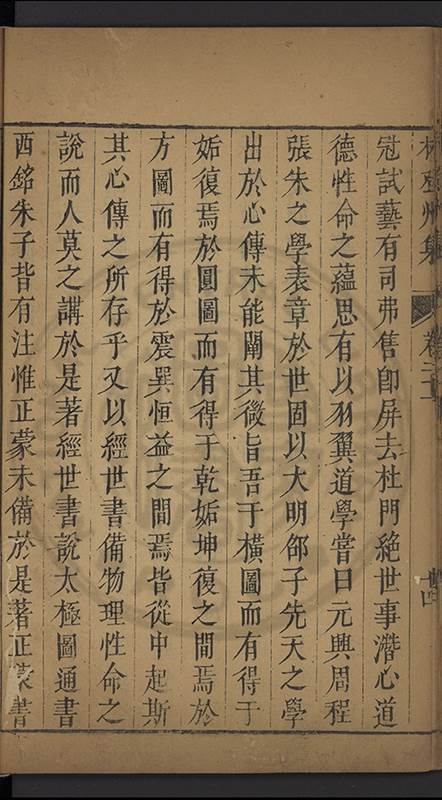 林登州集 卷二十
冠試藝有司弗售即屏去杜門絕世事潛心道
德性命之蘊思有以羽翼道學嘗曰元興周程
張朱之學表章於世固以大明邵子先天之學
出於心傳未能闡其微旨吾于橫圖而有得于
姤復焉於圓圖而有得于乾姤坤復之間焉於
方圖而有得於震巽恒益之間焉皆從中起斯
其心傳之所存乎又以經世書備物理性命之
說而人莫之講於是著經世書說太極圖通書
西銘朱子皆有注惟正蒙未備於是著正蒙書